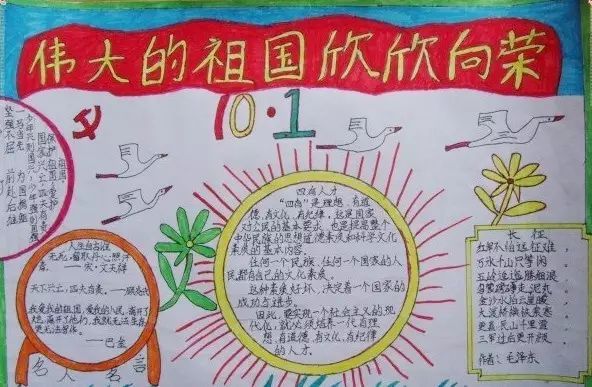 伟大的祖国欣欣向荣
10·1
坚强不屈 前赴后继
一马当先 为国捐躯
人生自古谁
无死，留取丹心照汗
青。 宋·文天祥
天下兴亡，匹夫有责。——顾炎武
我爱我的祖国，爱我的人民，离开了
她，离开了他们，我就无法生存，
更无法写作。
——巴金
名人名言
四有人才
“四有”是理想，有道
德，有文化，有纪律，这是国家
对公民的基本要求，也是提高整个
中华民族的思想道德素质和科学文化
素质的基本内容。
任何一个民族，任何一个国家的人
民都有自己的文化素质。
这种素质好坏，决定着一个国家的
成功与进步。
因此，要实现一个社会主义的现
代化，就必须培养一代有理
想，有道德，有文化，有纪律
的人才。
长征
红军不怕远征难，
万水千山只等闲
五岭逶迤腾细浪
乌蒙磅礴走泥丸
金沙水拍云崖暖
大渡桥横铁索寒
更喜岷山千里雪
三军过后尽开颜
作者：毛泽东